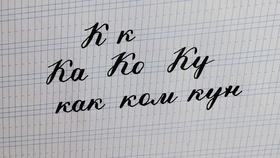 К к
Ка Ко Ку
как ком кун